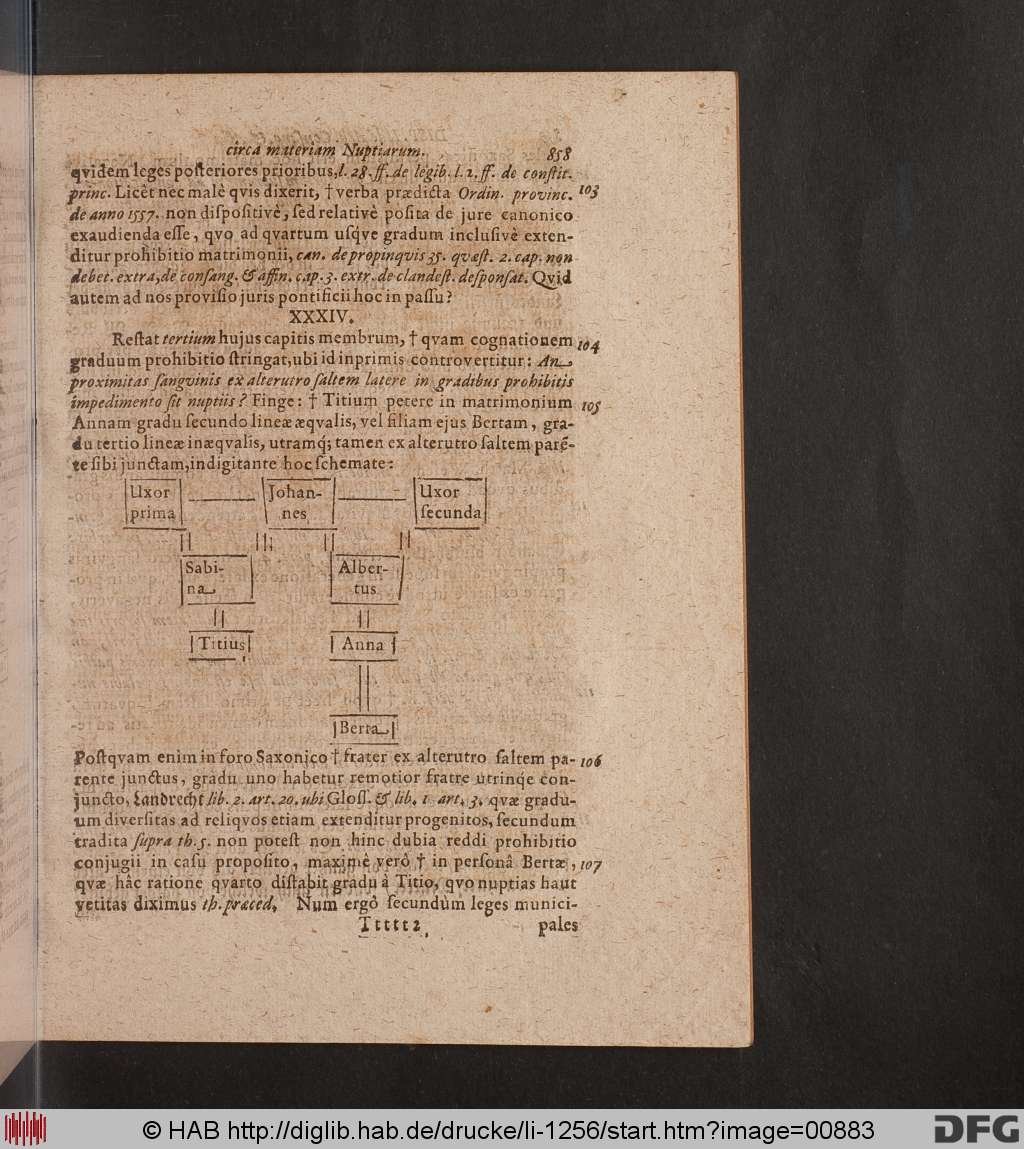 circa materiam Nuptiarum. 858
qvidem leges posteriores prioribus, l. 28. ff. de legib. l. 1. ff. de constit.
princ. Licèt nec malè qvis dixerit, † verba prædicta Ordin. provinc. 103
de anno 1557. non dispositivè, sed relativè posita de jure canonico
exaudienda esse, qvo ad qvartum usq́ve gradum inclusivè exten-
ditur prohibitio matrimonii, can. de propinqvis 35. qvæst. 2. cap. non
debet. extra, de consang. & affin. cap. 3. extr. de clandest. desponsat. Qvid
autem ad nos provisio juris pontificii hoc in passu?
XXXIV.
Restat tertium hujus capitis membrum, † qvam cognationem 104
graduum prohibitio stringat, ubi id inprimis controvertitur: An
proximitas sangvinis ex alterutro saltem latere in gradibus prohibitis
impedimento sit nuptiis? Finge: † Titium petere in matrimonium 105
Annam gradu secundo lineæ æqvalis, vel filiam ejus Bertam, gra-
du tertio lineæ inæqvalis, utramq; tamen ex alterutro saltem parẽ-
te sibi junctam, indigitante hoc schemate:
Uxor prima
Johan- nes
Uxor secunda
Sabi- na
Alber- tus
Titius
Anna
Berta
Postqvam enim in foro Saxonico † frater ex alterutro saltem pa- 106
rente junctus, gradu uno habetur remotior fratre utrinqe con-
juncto, Landrecht lib. 2. art. 20. ubi Gloss. & lib. 1 art. 3. qvæ gradu-
um diversitas ad reliqvos etiam extenditur progenitos, secundum
tradita supra th. 5. non potest non hinc dubia reddi prohibitio
conjugii in casu proposito, maximè verò † in personâ Bertæ, 107
qvæ hâc ratione qvarto distabit gradu à Titio, qvo nuptias haut
vetitas diximus th. præced. Num ergò secundùm leges munici-
Ttttt 2 pales
© HAB http://diglib.hab.de/drucke/li-1256/start.htm?image=00883
DFG